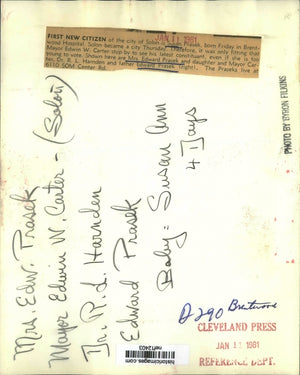 FIRST NEW CITIZEN of the city of Solon is Susan Prasek, born Friday in Brent-
wood Hospital. Solon became a city Thursday. Therefore, it was only fitting that
Mayor Edwin W. Carter stop by to see his latest constituent, even if she is too
young to vote. Shown here are Mrs. Edward Prasek and daughter and Mayor Car-
ter, Dr. R. L. Harnden and father Edward Prasek (right). The Praseks live at
SOM Center Rd.
JAN 11 1961
PHOTO by BYRON FILKINS
Mrs. Edw. Prasek
Mayor Edwin W. Carter - (Solon)
Dr. R. L. Harnden
Edward Prasek
Baby: Susan Ann
4 days
D290 Brentwood
CLEVELAND PRESS
JAN 11 1961
REFERENCE DEPT.
historicimages.com
nef12403